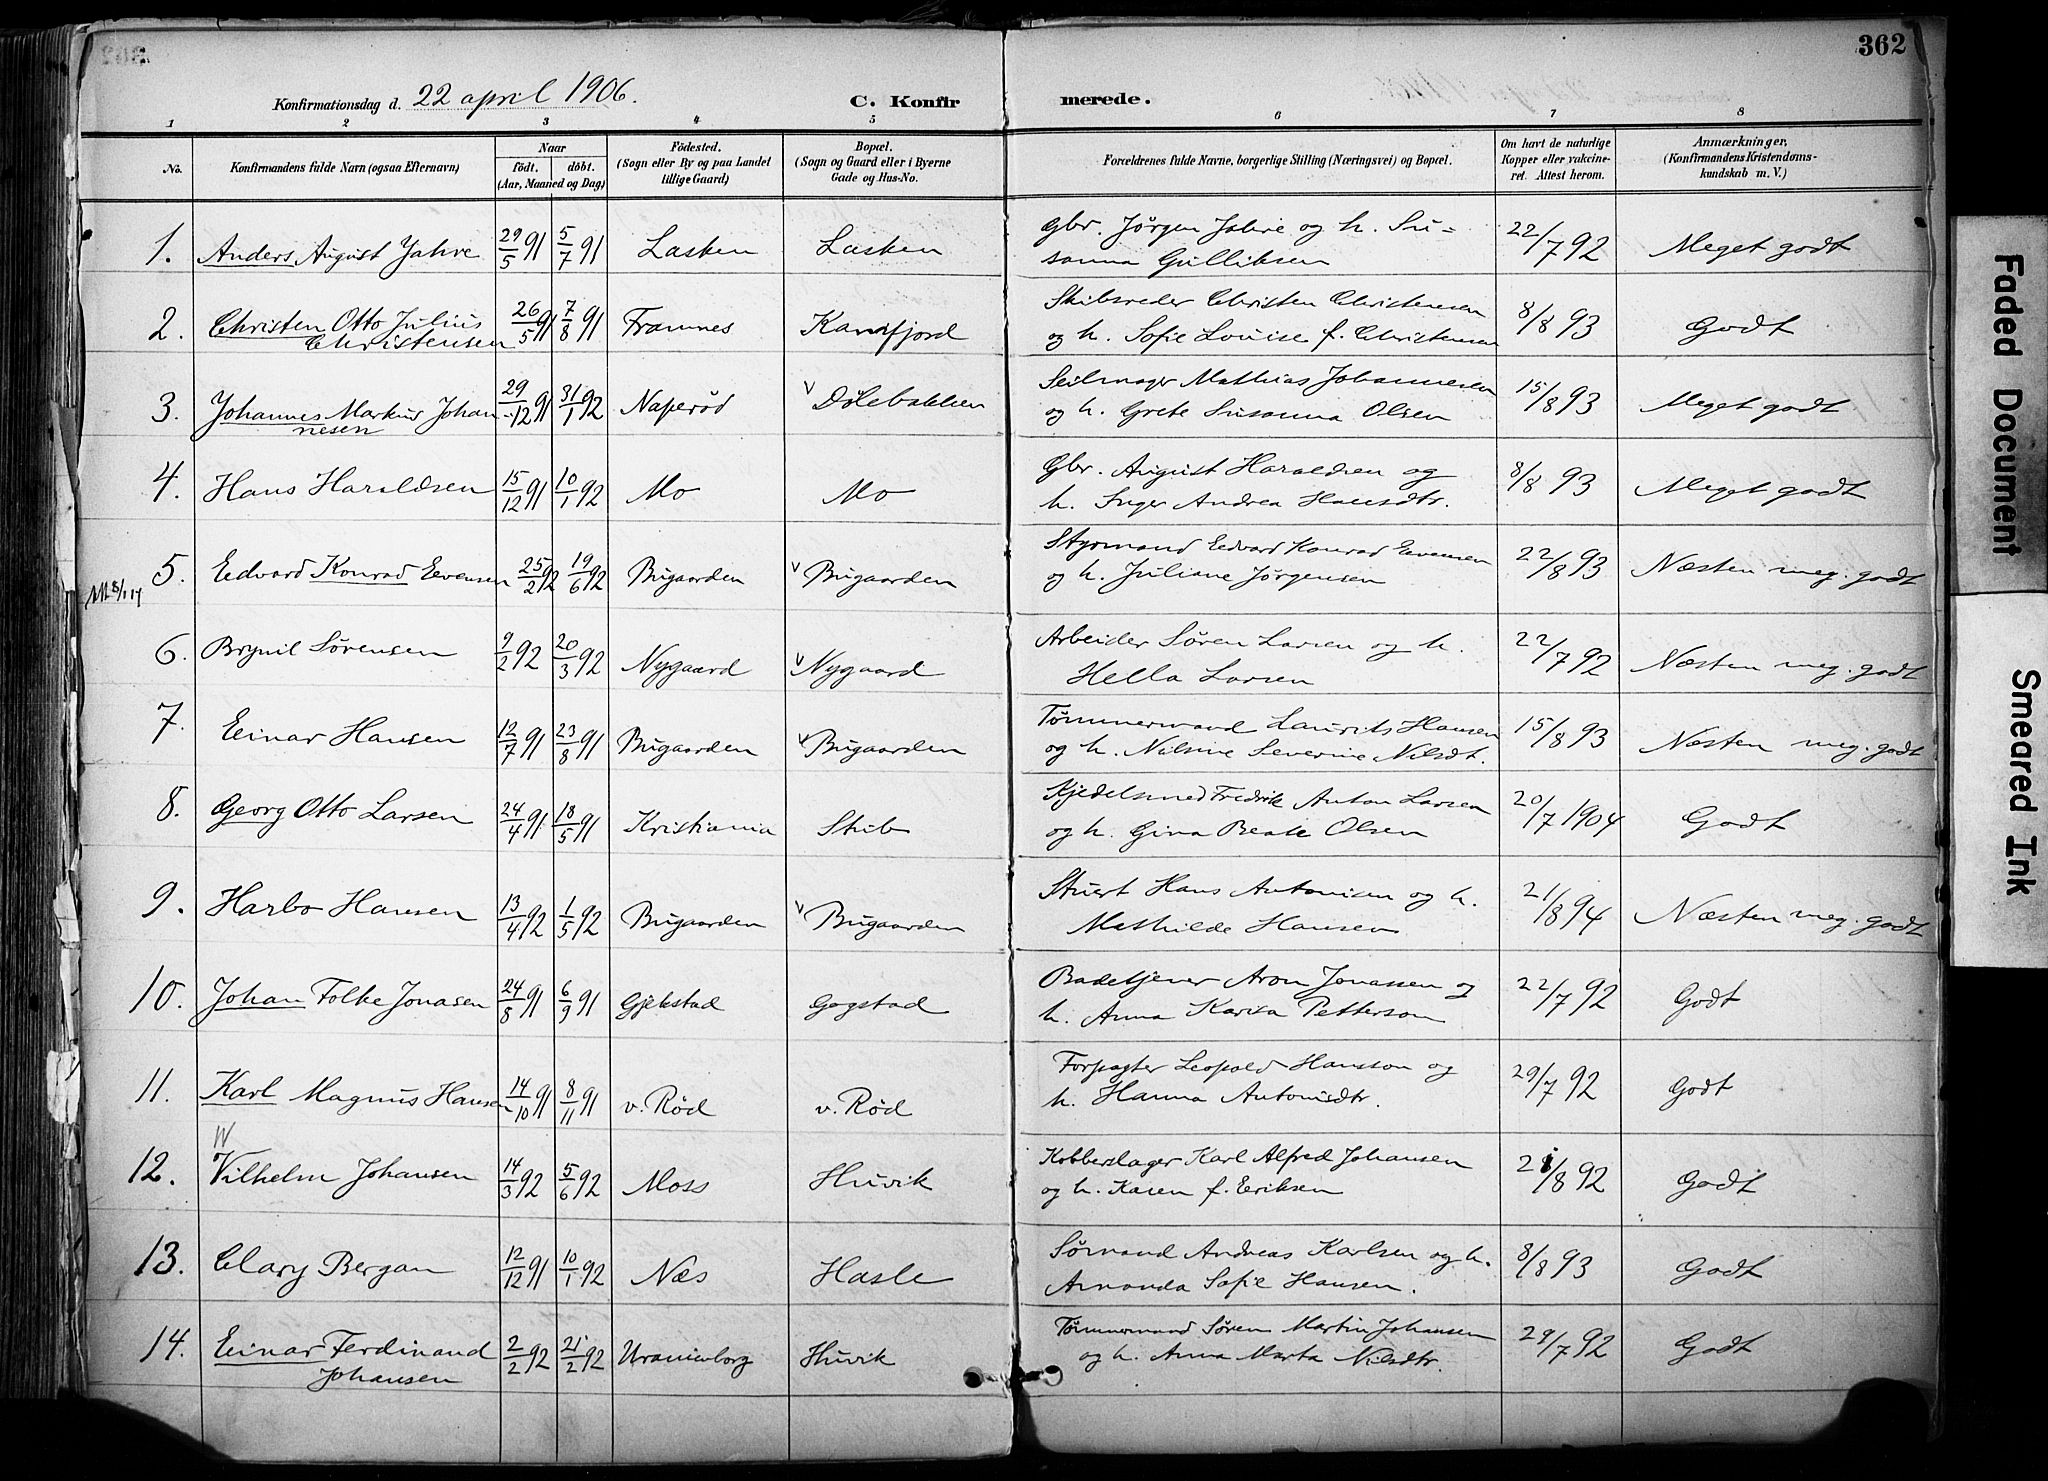 362
Konfirmationsdag d. 22 april 1906.
C. Konfirmerede.
1 2 3 4 5 6 7 8
No.
Konfirmandens fulde Navn (ogsaa Efternavn)
Naar
født. døbt.
(Aar, Maaned og Dag)
Fødested.
(Sogn eller By og paa Landet
tillige Gaard)
Bopæl.
(Sogn og Gaard eller i Byerne
Gade og Hus-No.
Forældrenes fulde Navne, borgerlige Stilling (Næringsvei) og Bopæl.
Om havt de naturlige
Kopper eller vakcine-
ret. Attest herom.
Anmærkninger.
(Konfirmandens Kristendoms-
kundskab m. V.)
1. Anders August Jahre 29/5 91 5/7 91 Lasken Lasken Gbr. Jørgen Jahre og h. Su=
sanna Gulliksen 22/7 92 Meget godt
2. Christen Otto Julius
Christensen 26/5 91 7/8 91 Framnes Kamfjord Skibsreder Christen Christensen
og h. Sofie Louise f. Christensen 8/8 93 Godt
3. Johannes Markus Johan-
nesen 29/12 91 31/1 92 Naperød v Dølebakken Seilmager Mathias Johannesen
og h. Grete Susanna Olsen 15/8 93 Meget godt
4. Hans Haraldsen 15/12 91 10/1 92 Mo Mo Gbr. August Haraldsen og
h. Inger Andrea Hansdtr. 8/8 93 Meget godt
5. Edvard Konrad Evensen 25/2 92 19/6 92 Bugaarden v Bugaarden Styrmand Edvard Konrad Evensen
og h. Juliane Jørgensen 22/8 93 Næsten meg. godt
6. Brynil Sørensen 9/2 92 20/3 92 Nygaard v Nygaard Arbeider Søren Larsen og h.
Hella Larsen 22/7 92 Næsten meg. godt
7. Einar Hansen 12/7 91 23/8 91 Bugaarden v Bugaarden Tømmermand Laurits Hansen
og h. Nilsine Severine Nilsdt. 15/8 93 Næsten meg. godt
8. Georg Otto Larsen 24/4 91 18/5 91 Kristiania Stub Kjedelsmed Fredrik Anton Larsen
og h. Gina Beate Olsen 20/7 1904 Godt
9. Harbo Hansen 13/4 92 1/5 92 Bugaarden v Bugaarden Stuert Hans Antonisen og h.
Mathilde Hansen 21/8 94 Næsten meg. godt
10. Johan Folke Jonasen 24/8 91 6/9 91 Gjekstad Gogstad Badetjener Aron Jonassen og
h. Anna Karisa Petterson 22/7 92 Godt
11. Karl Magnus Hansen 14/10 91 8/11 91 v. Rød v. Rød Forpagter Leopold Hansson og
h. Hanna Antonisdtr. 29/7 92 Godt
W
12. Vilhelm Johansen 14/3 92 5/6 92 Moss Huvik Kobberslager Karl Alfred Johansen
og h. Karen f. Eriksen /8 92 Godt
13. Clary Bergan 12/12 91 10/1 92 Næs Hasle Sørnand Andreas Karlsen og h.
Amanda Sofie Hansen. 8/8 93 Godt
14. Einar Ferdinand
Johansen 2/2 92 21/2 92 Uranienborg Huvik Tømmermand Søren Martin Johansen
og h. Anna Marta Nilsdtr. 29/7 92 Godt
Faded Document
Smeared Ink